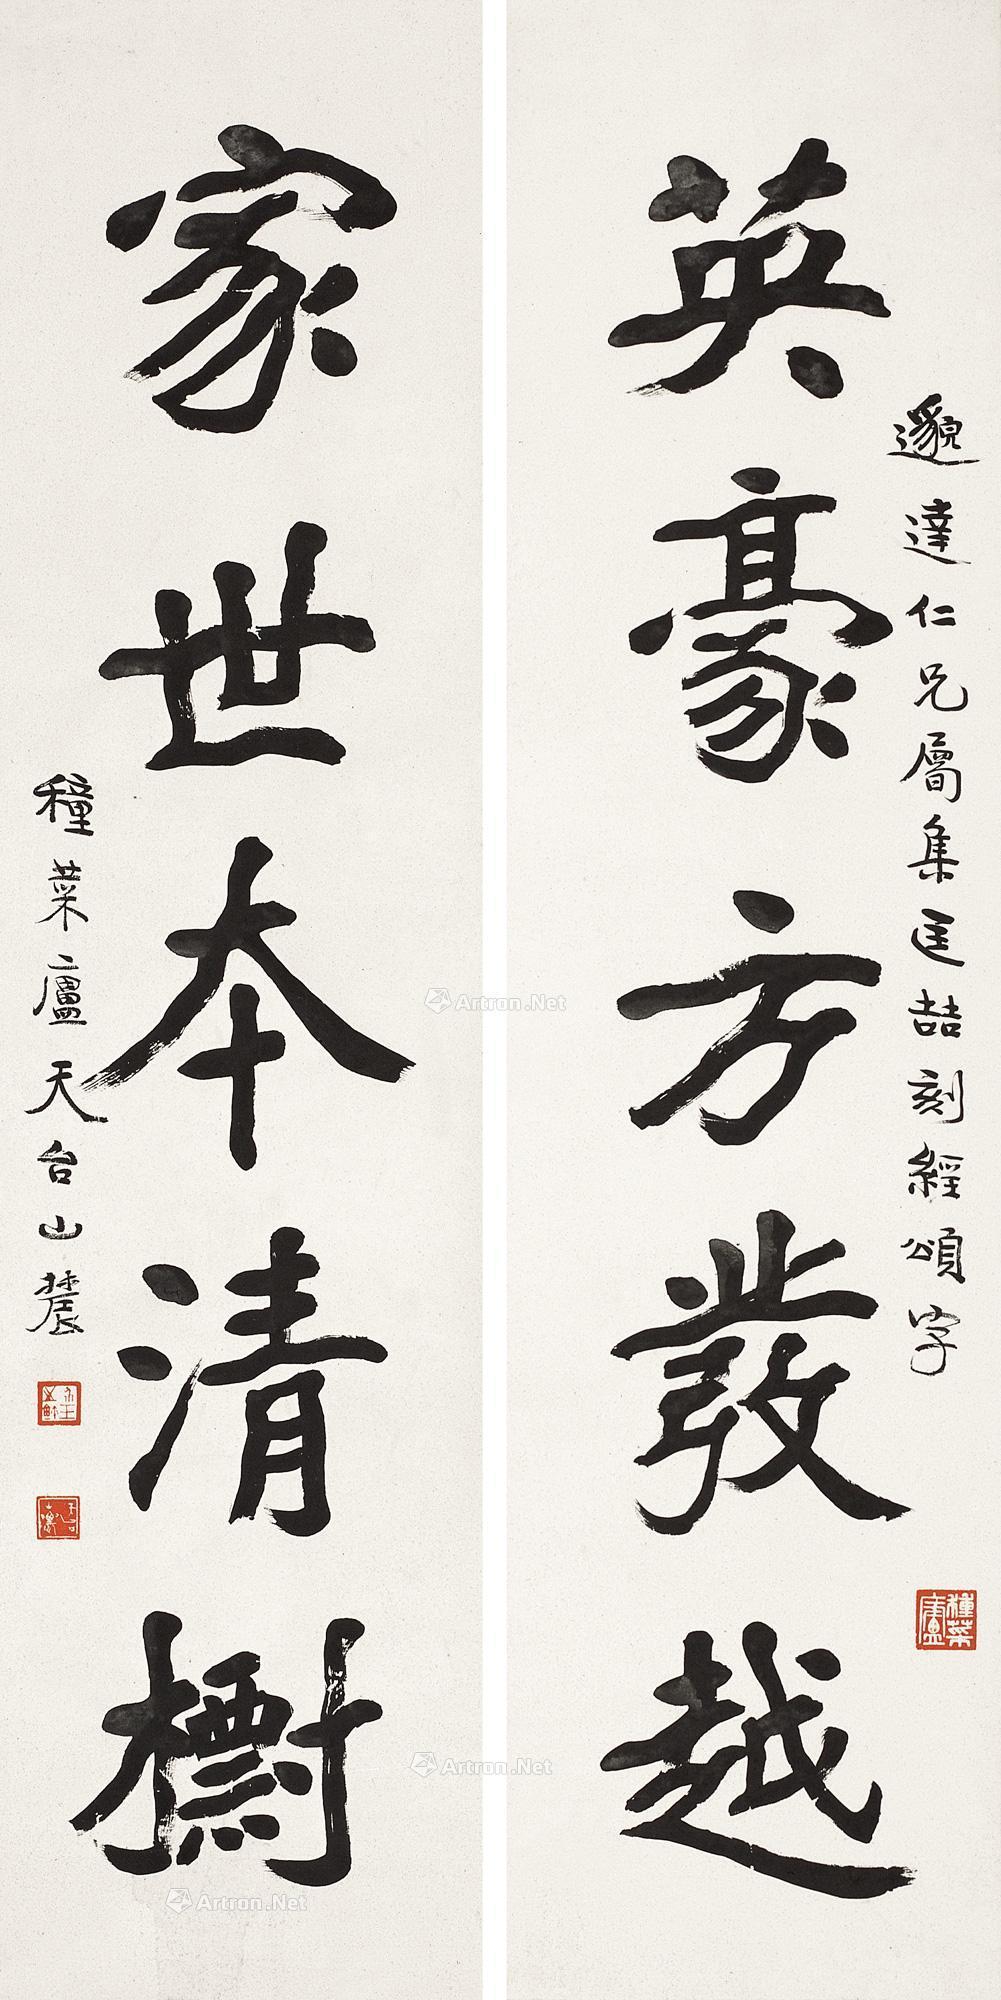 英豪方發越
邈達仁兄屬集匡喆刻經頌字
種菜廬
家世本清
穜菜廬天台山農
Artron.Net
Artron.Net
Artron.Net